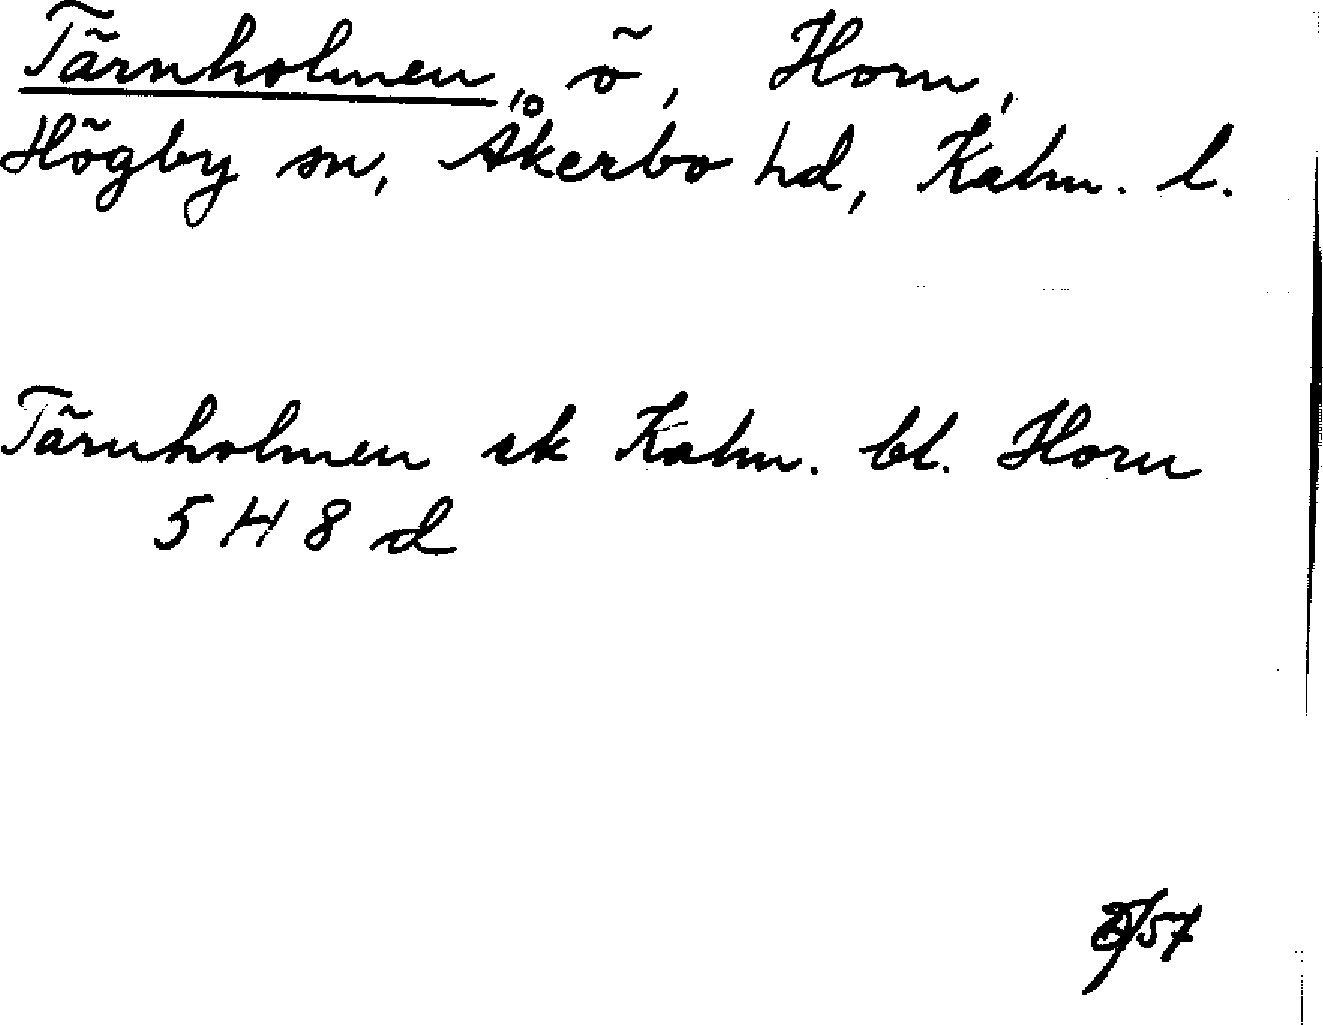 Tärnholmen, ö, Horn,
Högby sn, Åkerbo hd, Kalm. l.
Tärnholmen ek Kalm. bl. Horn
5 H 8 d
/57